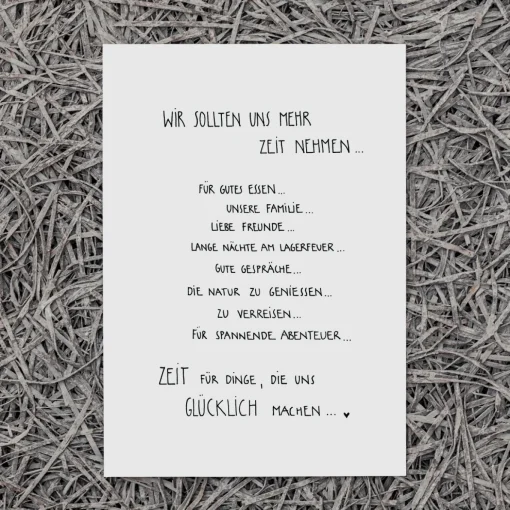 WIR SOLLTEN UNS MEHR
ZEIT NEHMEN...
FÜR GUTES ESSEN...
UNSERE FAMILIE...
LIEBE FREUNDE...
LANGE NÄCHTE AM LAGERFEUER...
GUTE GESPRÄCHE...
DIE NATUR ZU GENIESSEN...
ZU VERREISEN...
FÜR SPANNENDE ABENTEUER...
ZEIT FÜR DINGE, DIE UNS
GLÜCKLICH MACHEN... ♥